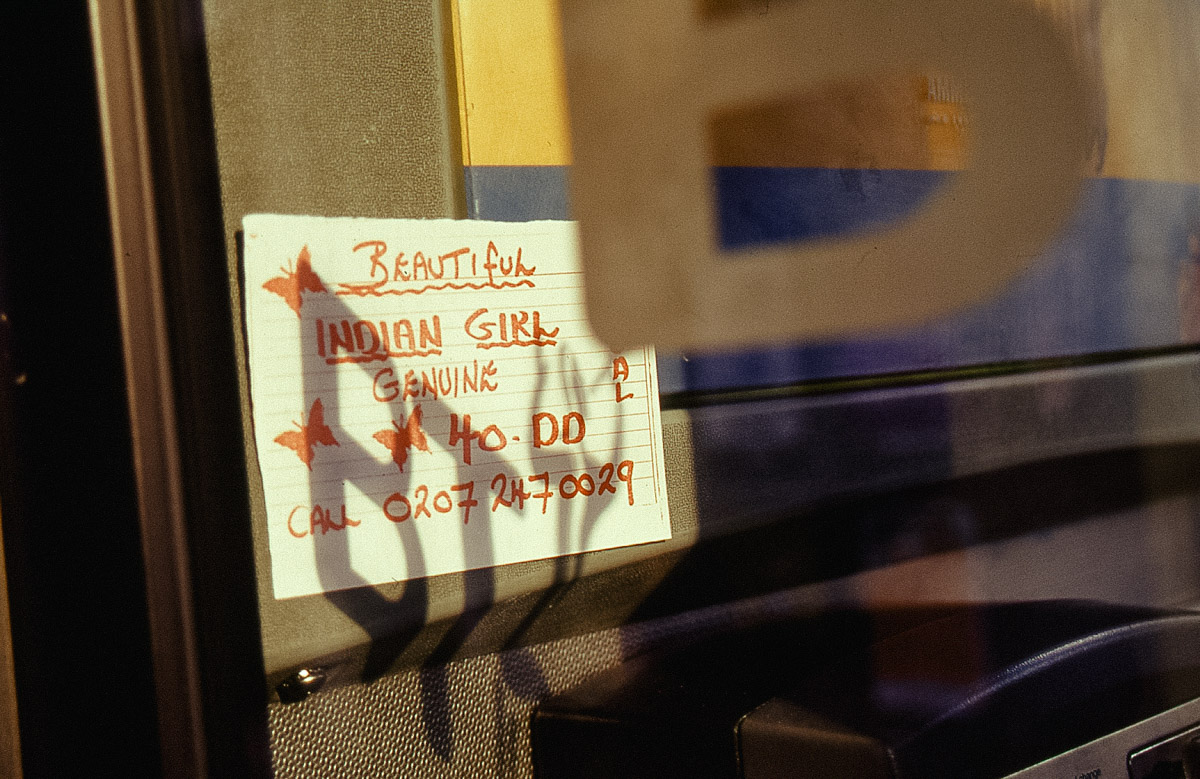 BEAUTIFUL
INDIAN GIRL
GENUINE
A
L
40-DD
CALL 0207 247 0029
B